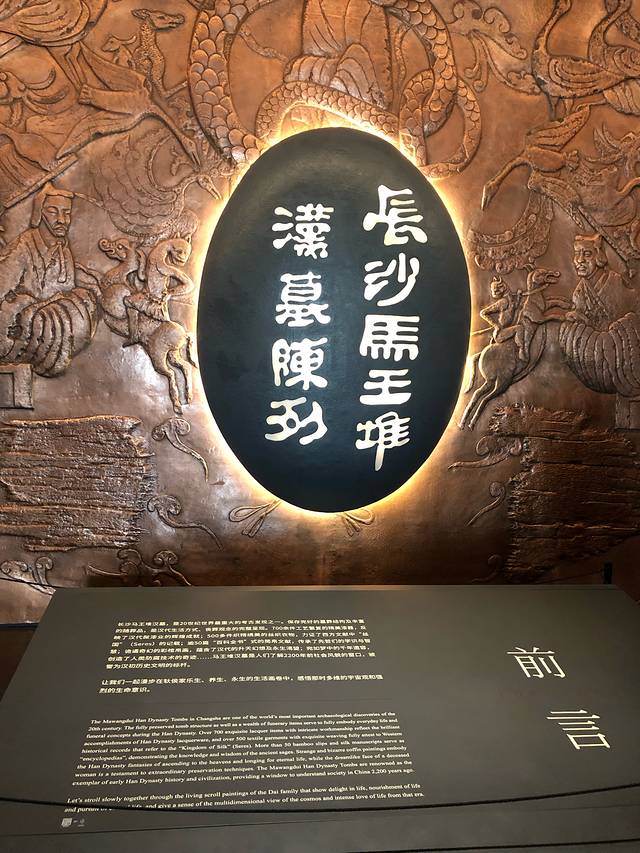 長沙馬王堆
漢墓陳列
前言
长沙马王堆汉墓，是20世纪世界最重大的考古发现之一。保存完好的墓葬结构及丰富
的随葬品，是汉代生活方式、丧葬观念的完整呈现。700余件工艺繁复的精美漆器，反
映了汉代髹漆业的辉煌成就；500多件织精绣美的丝织衣物，力证了西方文献中“丝
国”（Seres）的记载；逾50篇“百科全书”式的简帛文献，传承了先哲们的学识与智
慧；诡谲奇幻的彩棺帛画，蕴含了汉代的升天幻想及永生渴望；宛如梦中的千年遗容，
创造了人类防腐技术的奇迹……马王堆汉墓是人们了解2200年前社会风貌的窗口，被
誉为汉初历史文明的标杆。
让我们一起漫步在轪侯家乐生、养生、永生的生活画卷中，感悟那时多维的宇宙观和强
烈的生命意识。
The Mawangdui Han Dynasty Tombs in Changsha are one of the world's most important archaeological discoveries of the
20th century. The fully preserved tomb structure as well as a wealth of funerary items serve to fully embody everyday life and
funeral concepts during the Han Dynasty. Over 700 exquisite lacquer items with intricate workmanship reflect the brilliant
accomplishments of Han Dynasty lacquerware, and over 500 textile garments with exquisite weaving fully attest to Western
historical records that refer to the “Kingdom of Silk” (Seres). More than 50 bamboo slips and silk manuscripts serve as
“encyclopedias”, demonstrating the knowledge and wisdom of the ancient sages. Strange and bizarre coffin paintings embody
the Han Dynasty fantasies of ascending to the heavens and longing for eternal life, while the dreamlike face of a deceased
woman is a testament to extraordinary preservation techniques. The Mawangdui Han Dynasty Tombs are renowned as the
exemplar of early Han Dynasty history and civilization, providing a window to understand society in China 2,200 years ago.
Let's stroll slowly together through the living scroll paintings of the Dai family that show delight in life, nourishment of life
and pursuit of life, and give a sense of the multidimensional view of the cosmos and intense love of life from that era.